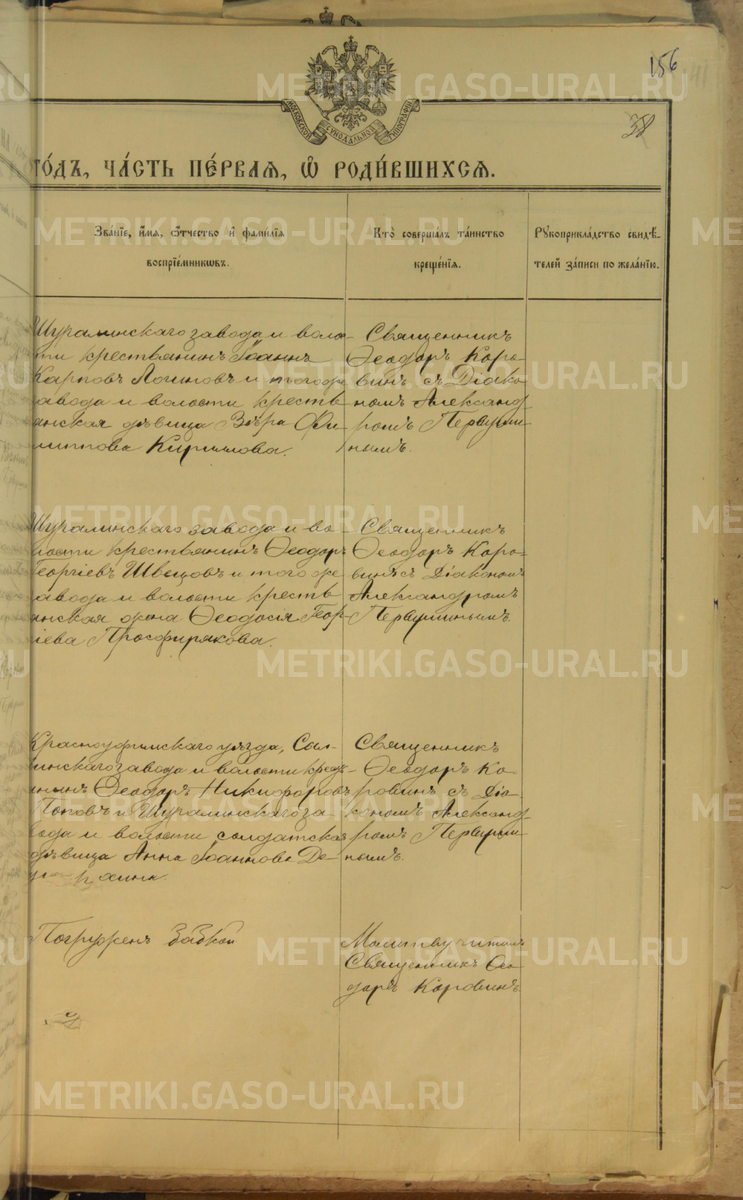 156
38
МОСКОВСКОЙ СУНОДАЛЬНОЙ ТИПОГРАФІИ
ГОДЪ, ЧАСТЬ ПЕРВАЯ, Ѡ РОДИВШИХСЯ.
Званіе, имя, отчество и фамилія
воспріемниковъ.
Кто совершалъ таинство
крещенія.
Рукоприкладство свидѣ-
телей записи по желанію.
Шуралинскаго завода и воло-
сти крестьянинъ Іоаннъ
Карповъ Логиновъ и того же
завода и волости кресть-
янская дѣвица Вѣра Фи-
липпова Кириллова.
Священникъ
Ѳеодоръ Коро-
винъ съ Діако-
номъ Александ-
ромъ Первуши-
нымъ.
Шуралинскаго завода и во-
лости крестьянинъ Ѳеодоръ
Георгіевъ Швецовъ и того же
завода и волости кресть-
янская жена Ѳеодосія Геор-
гіева Просфирякова.
Священникъ
Ѳеодоръ Коро-
винъ съ Діакономъ
Александромъ
Первушинымъ.
Красноуфимскаго уѣзда,
завода и волости кресть-
нинъ Ѳеодоръ Никифоровъ
Поповъ и Шуралинскаго за-
вода и волости солдатская
дѣвица Анна Іоаннова
Священникъ
Ѳеодоръ Ко-
ровинъ съ Діа-
кономъ Александ-
ромъ Первуши-
нымъ.
Погруженъ бабкой
Молитву читалъ
Священникъ Ѳео-
доръ Коровинъ
METRIKI.GASO-URAL.RU